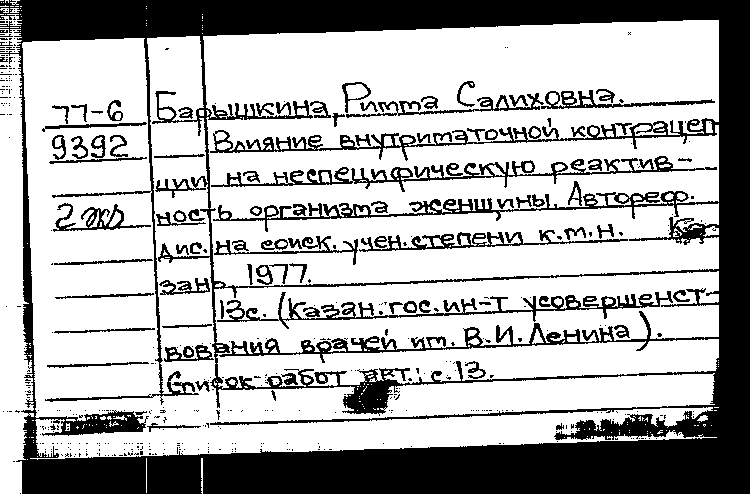 77-6 Барышкина, Римма Салиховна.
9392 Влияние внутриматочной контрацеп
ции на неспецифическую реактив-
2 экз ность организма женщины. Автореф.
дис. на соиск. учен. степени к.м.н.
зань, 1977.
13с. (Казан. гос. ин-т усовершенст-
вования врачей им. В.И. Ленина).
Список работ авт.: с.13.